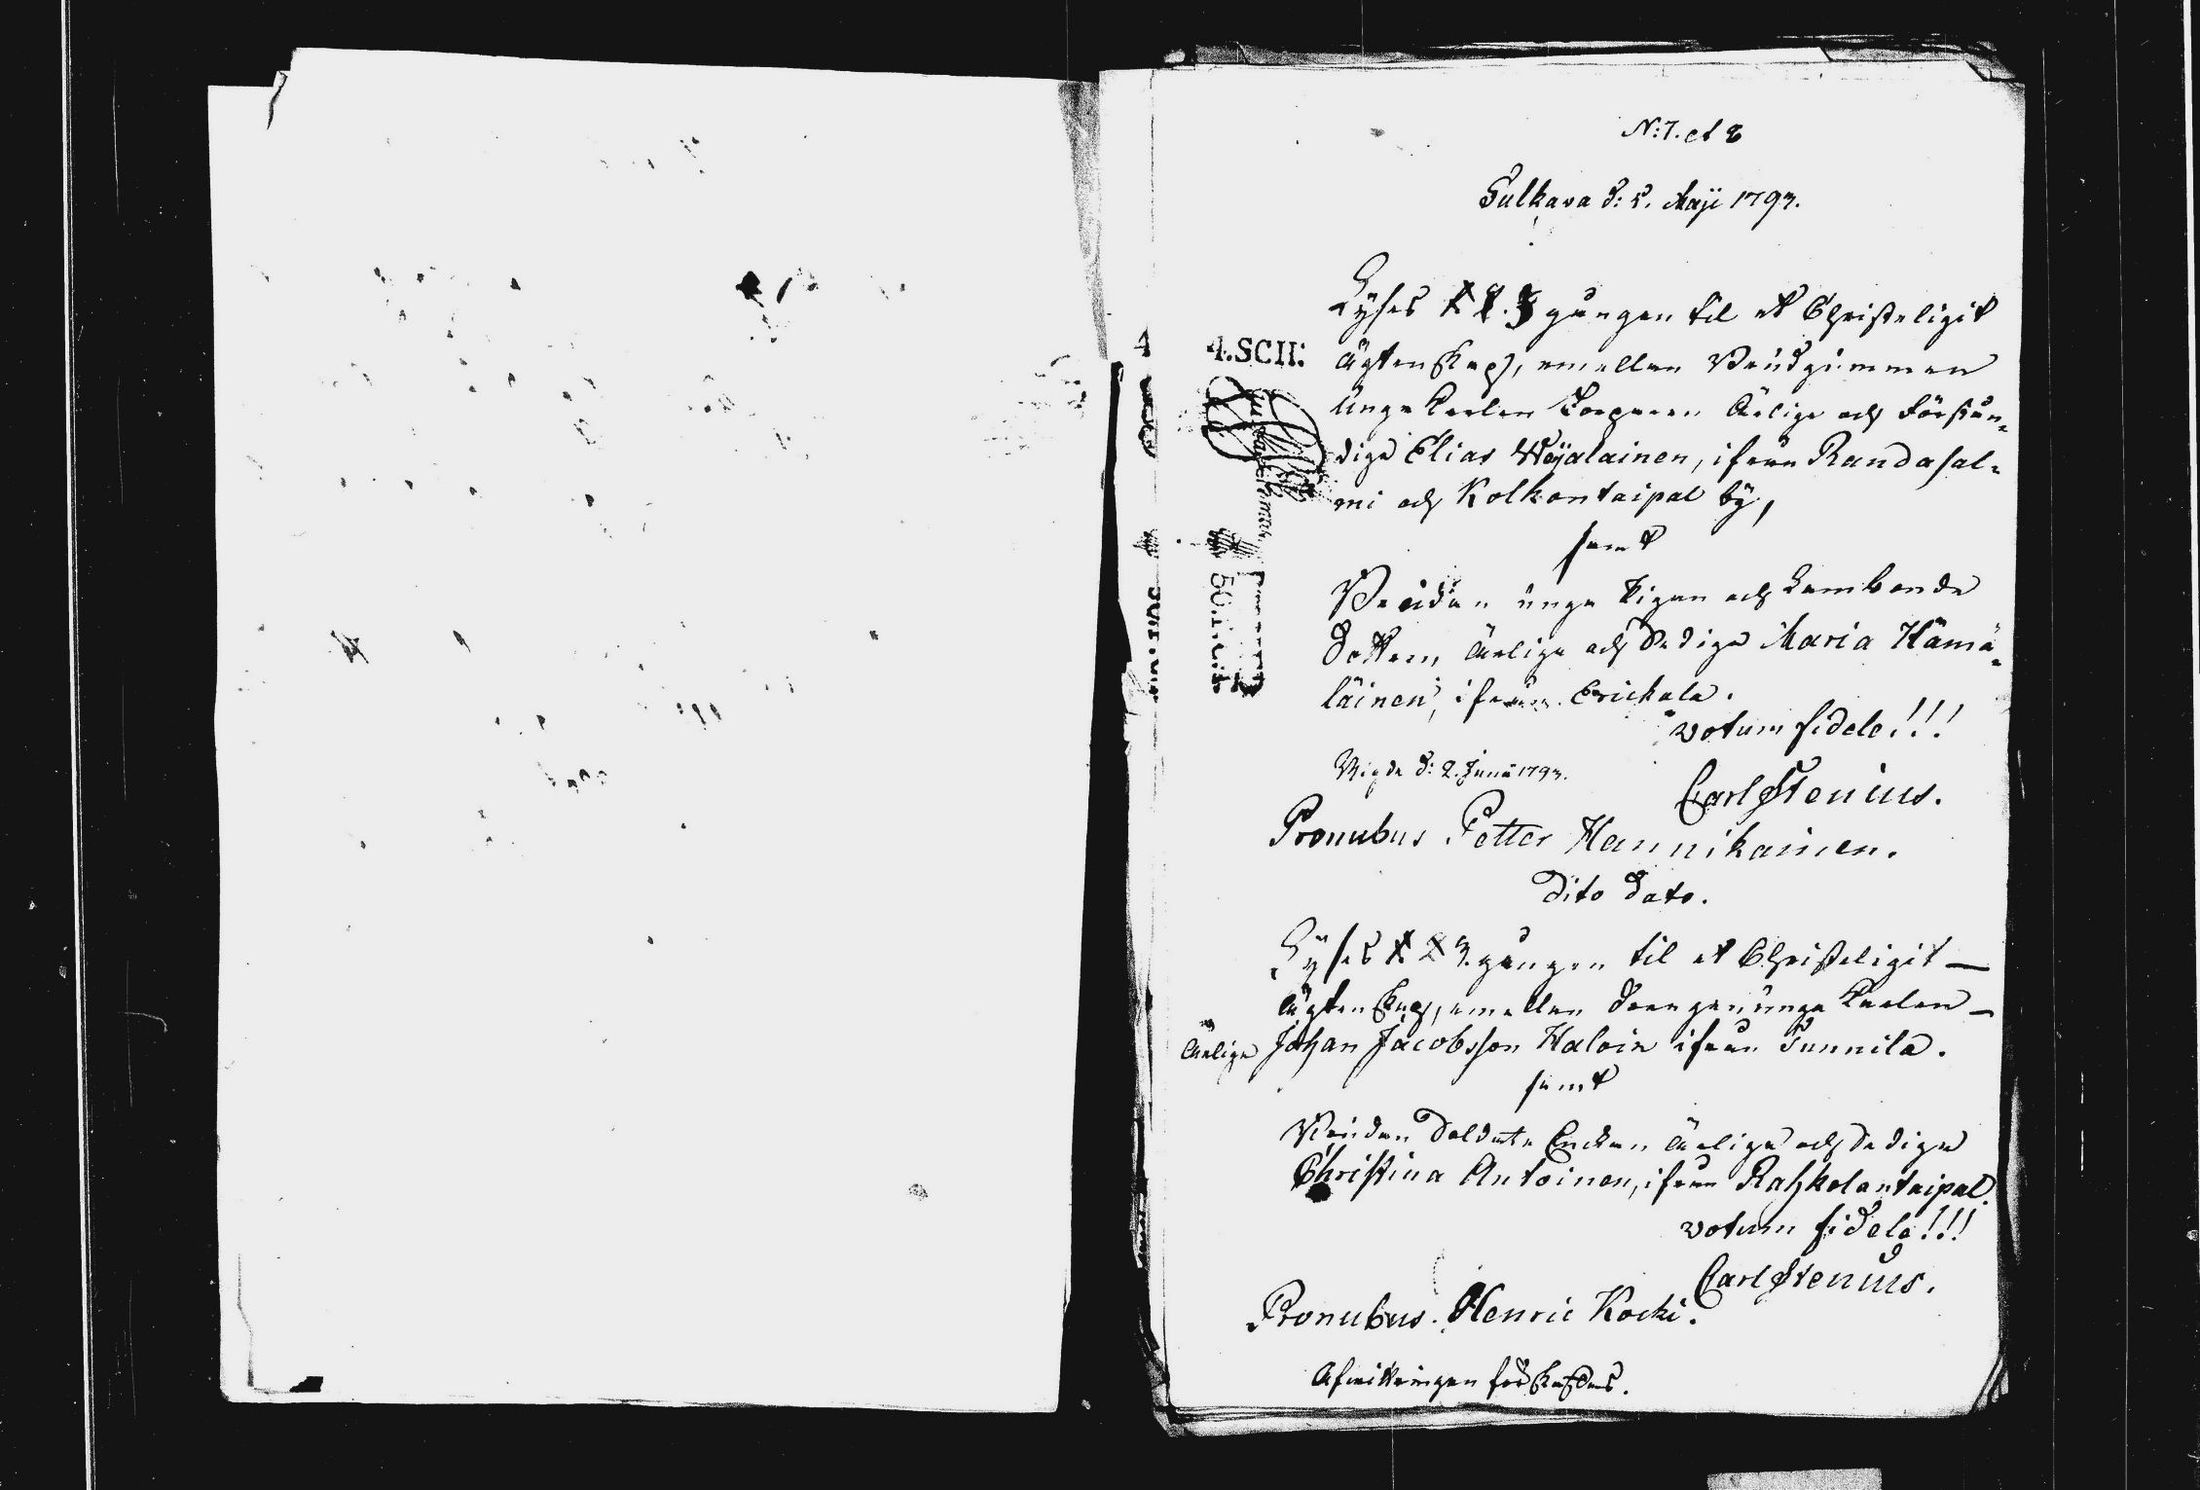 N:7. et 8
Sulkava d: 5. Maji 1793.
Lyses 1 2. 3 gången til et Christeligit
ägtenskap, emellan Brudgummen
unga Karlen Torparen ärlige och förstån-
dige Elias Wäjalainen, ifrån Randasal-
mi och Kolkontaipal by,
samt
Bruden unga Pigan och Lambonde
dottren, ärliga och dediga Maria Hämä-
läinen, ifrån Erickala.
votum fidele!!!
Vigde d: 2. Junii 1793.
Carl Stenius.
Pronubus Petter Hannikainen.
Dito Dato.
Lyses 1 2 3. gången til et Christeligit
ägtenskap, emellan Drengen unga Karlen
ärlige Johan Jacobsson Haloin ifrån Sunnila.
samt
Bruden Soldate Enckan ärliga och dediga
Christina Antoinen, ifrån Rahkolantaipal.
votum fidele!!!
Carl Stenius.
Pronubus. Henric Kocki.
Afwittringen förskaffas.
4.SCH: